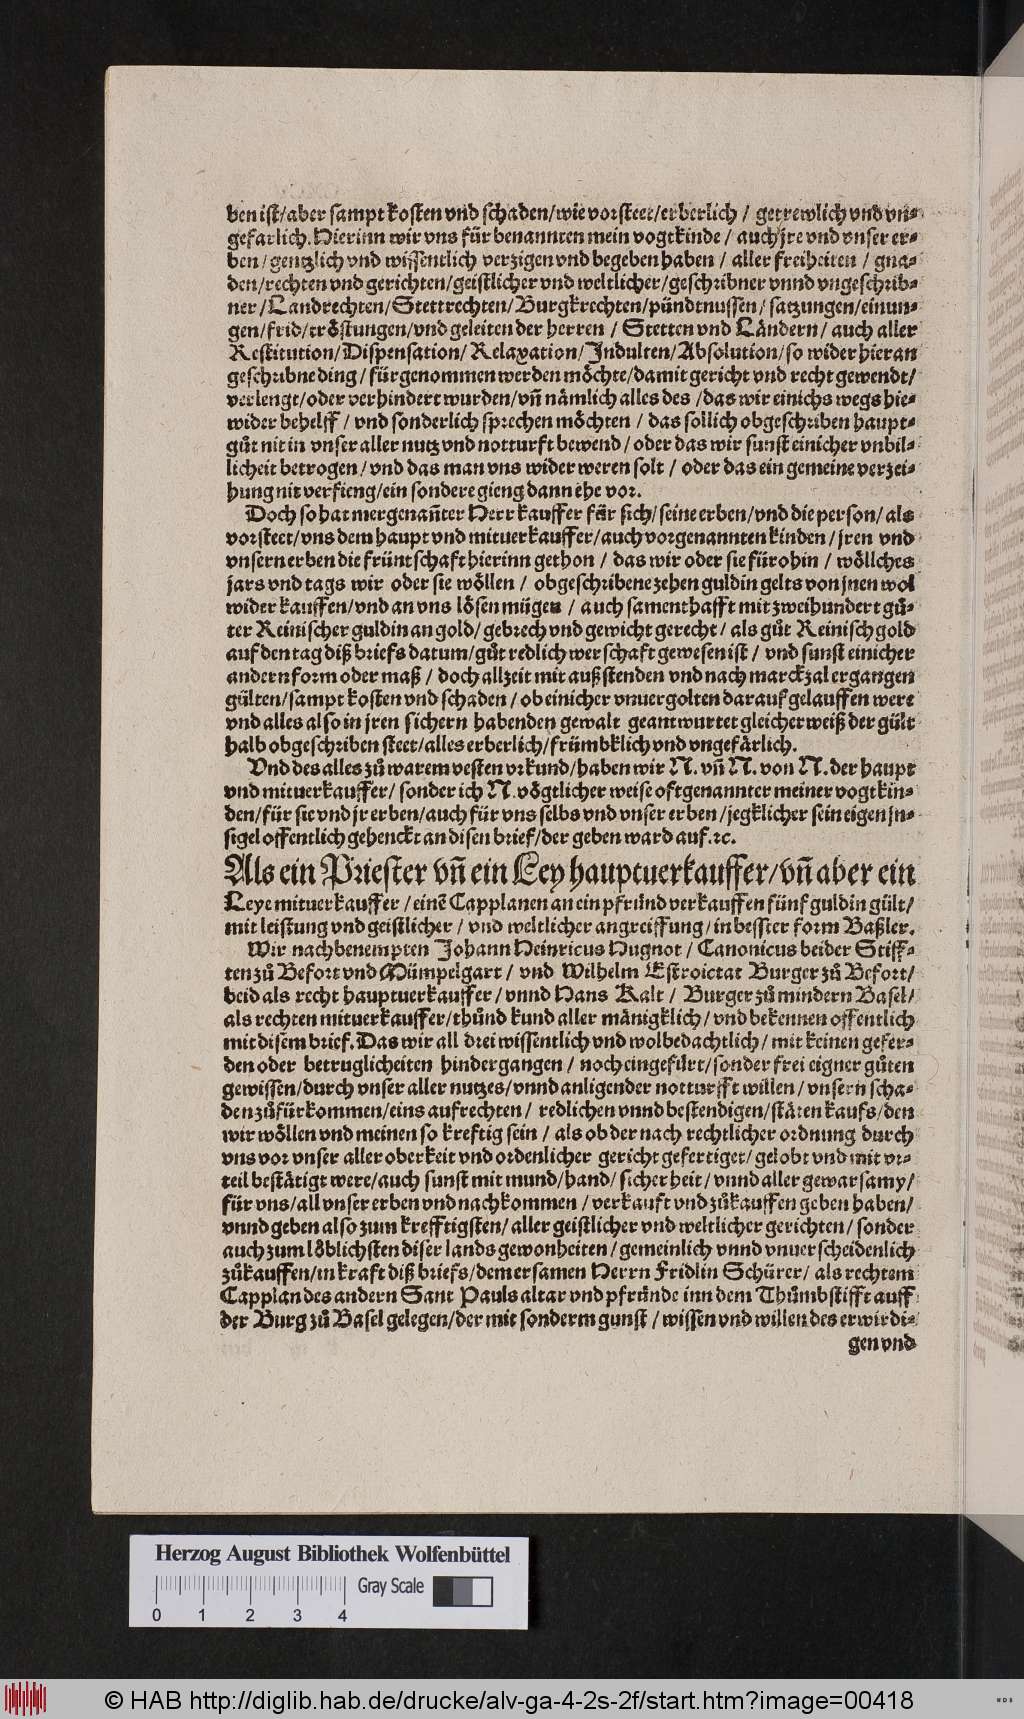 ben ist/aber sampt kosten vnd schaden/wie vorsteet/erberlich / getrewlich vnd vn⸗
gefarlich. Hierinn wir vns für benannten mein vogtkinde / auch jre vnd vnser er⸗
ben / gentzlich vnd wissentlich verzigen vnd begeben haben / aller freiheiten / gna⸗
den/rechten vnd gerichten/geistlicher vnd weltlicher/geschribner vnnd vngeschrib⸗
ner / Landrechten/Stettrechten/Burgkrechten/pündtnussen/satzungen/einun⸗
gen/frid/tröstungen/vnd geleiten der herren / Stetten vnd Ländern / auch aller
Restitution/Dispensation/Relaxation/Indulten/Absolution/so wider hieran
geschribne ding / fürgenommen werden möchte/damit gericht vnd recht gewendt/
verlengt/oder verhindert wurden/vñ nämlich alles des /das wir einichs wegs hie⸗
wider behelff / vnd sonderlich sprechen möchten / das sollich obgeschriben haupt⸗
gůt nit in vnser aller nutz vnd notturft bewend / oder das wir sunst einicher vnbil⸗
licheit betrogen / vnd das man vns wider weren solt / oder das ein gemeine verzei⸗
hung nit verfieng/ein sondere gieng dann ehe vor.
Doch so hat mergenañter Herr kauffer für sich/ seine erben/vnd die person/ als
vorsteet/vns dem haupt vnd mituerkauffer/auch vorgenannten kinden/jren vnd
vnsern erben die früntschaft hierinn gethon / das wir oder sie fürohin / wölliches
jars vnd tags wir oder sie wöllen / obgeschribene zehen guldin gelts von jnen wol
wider kauffen/vnd an vns lösen mügen / auch samenthafft mit zweihundert gů⸗
ter Reinischer guldin an gold/gebrech vnd gewicht gerecht/ als gůt Reinisch gold
auf den tag diß briefs datum/gůt redlich werschaft gewesen ist / vnd sunst einicher
andern form oder maß / doch allzeit mit außstenden vnd nach marckzal ergangen
gülten/sampt kosten vnd schaden / ob einicher vnuergolten darauf gelauffen were
vnd alles also in jren sichern habenden gewalt geantwurtet gleicher weiß der gült
halb obgeschriben steet/alles erberlich/frümbklich vnd vngefärlich.
Vnd des alles zů warem vesten vrkund/haben wir N. vñ N. von N. der haupt
vnd mituerkauffer/ sonder ich N. vögtlicher weise oftgenannter meiner vogtkin⸗
den/für sie vnd jr erben/auch für vns selbs vnd vnser erben /jegklicher sein eigen jn⸗
sigel offentlich gehenckt an disen brief/der geben ward auf.ꝛc.
Als ein Priester vñ ein Ley hauptuerkauffer/vñ aber ein
Leye mituerkauffer / einẽ Capplanen an ein pfrůnd verkauffen fünf guldin gült/
mit leistung vnd geistlicher / vnd weltlicher angreiffung/in besster form Baßler.
Wir nachbenempten Johann Heinricus Hugnot / Canonicus beider Stiff⸗
ten zů Befort vnd Mümpelgart / vnd Wilhelm Estroictat Burger zů Befort/
beid als recht hauptuerkauffer / vnnd Hans Kalt / Burger zů mindern Basel/
als rechten mituerkauffer/thůnd kund aller mänigklich/vnd bekennen offentlich
mit disem brief. Das wir all drei wissentlich vnd wolbedachtlich/mit keinen gefer⸗
den oder betruglicheiten hindergangen / noch eingefürt/sonder frei eigner gůten
gewissen/durch vnser aller nutzes/vnnd anligender notturfft willen / vnsern scha⸗
den zůfürkommen/eins aufrechten / redlichen vnnd bestendigen/stäten kaufs/den
wir wöllen vnd meinen so kreftig sein / als ob der nach rechtlicher ordnung durch
vns vor vnser aller oberkeit vnd ordenlicher gericht gefertiget/gelobt vnd mit vr⸗
teil bestätigt were/auch sunst mit mund/hand/sicherheit/vnnd aller gewarsamy/
für vns/all vnser erben vnd nachkommen / verkauft vnd zůkauffen geben haben/
vnnd geben also zum krefftigsten/aller geistlicher vnd weltlicher gerichten/sonder
auch zum loblichsten diser lands gewonheiten/gemeinlich vnnd vnuerscheidenlich
zůkauffen/in kraft diß briefs/dem ersamen Herrn Fridlin Schürer/als rechtem
Capplan des andern Sant Pauls altar vnd pfründe inn dem Thůmbstifft auff
der Burg zů Basel gelegen/der mit sonderm gunst / wissen vnd willen des erwirdi⸗
gen vnd
Herzog August Bibliothek Wolfenbüttel
Gray Scale
0 1 2 3 4
© HAB http://diglib.hab.de/drucke/alv-ga-4-2s-2f/start.htm?image=00418